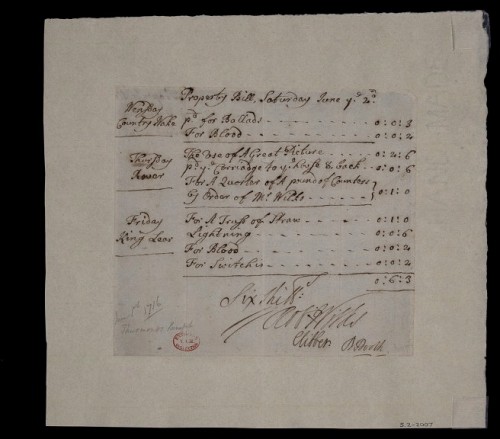 Property Bill, Saturday June yᵉ 2ᵈ
Wensday
Country Wake
pᵈ for Ballads - - - - 0:0:3
For Blood - - - - 0:0:2
Thursday
Rover
The Use of A Great Picture - - - - 0:2:6
pᵈ yᵉ Carriadge to yᵉ house & back - - 0:0:6
For A Quarter of A pound of
By Order of Mʳ Wilks - - - - 0:1:0
Friday
King Lear
For A Truss of Straw - - - - 0:1:0
Lightning - - - - 0:0:6
For Blood - - - - 0:0:2
For Switchis - - - - 0:0:2
0:6:3
Six Shill
Robt Wilks
Cibber B Booth
1716